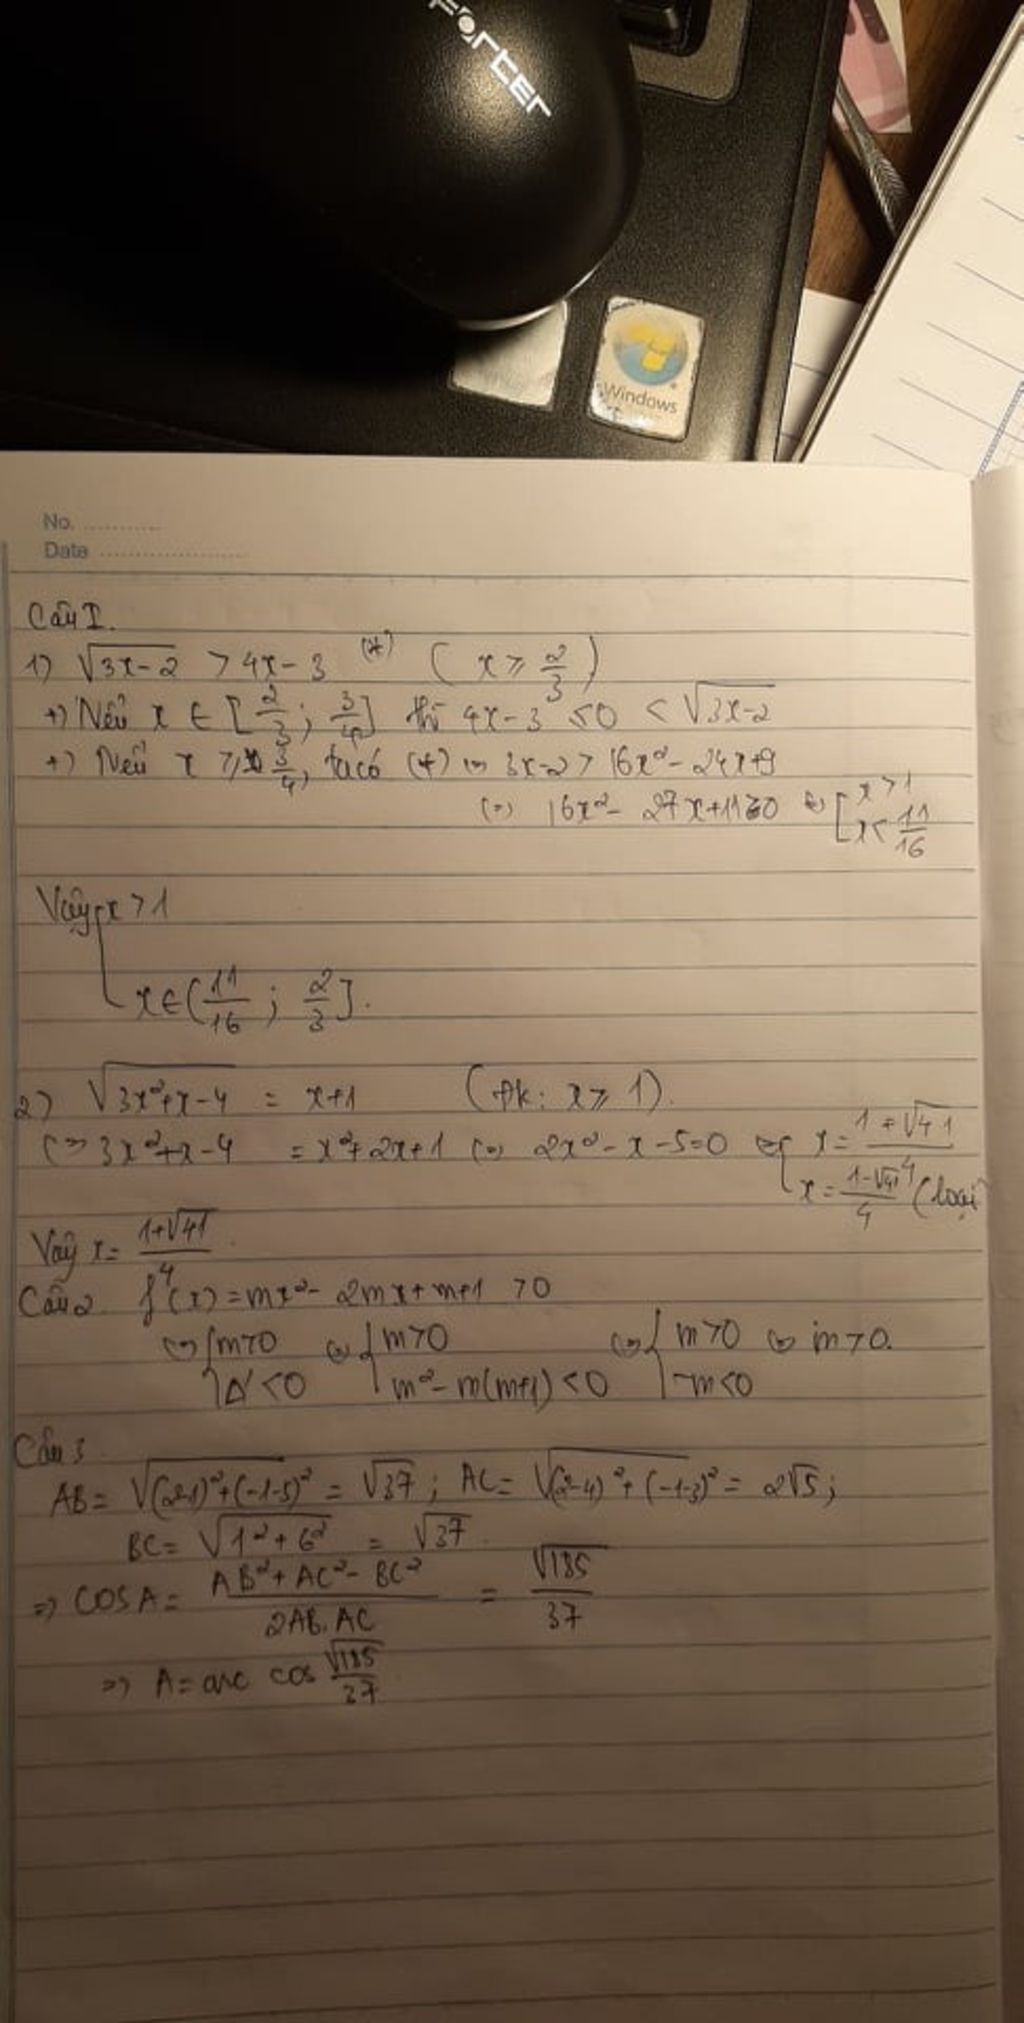 Forter
Windows
No. ...........
Date ......................
Câu I.
1) √(3x-2) > 4x-3 (*) (x ⩾ 2/3)
+) Nếu x ∈ [2/3; 3/4] thì 4x-3 ≤ 0 < √(3x-2)
+) Nếu x ⩾ 3/4, ta có (*) ⇔ 3x-2 > 16x²- 24x+9
⇔ 16x²- 27x+11 ≥ 0 ⇔ [x > 1
x < 11/16
Vậy x > 1
x ∈ (11/16 ; 2/3].
2) √(3x²+x-4) = x+1 (đk: x ⩾ 1).
⇔ 3x²+x-4 = x²+2x+1 ⇔ 2x²- x -5=0 ⇔ { x = (1+√41)/4
x = (1-√41)/4 (loại
Vậy x = (1+√41)/4.
Câu 2 f(x) = mx²- 2mx+m+1 > 0
⇔ { m>0 ⇔ { m>0 ⇔ { m>0 ⇔ m>0.
Δ' <0 m²- m(m+1) <0 -m<0
Câu 3
AB = √((2-1)²+(-1-5)²) = √37 ; AC = √((2-4)²+(-1-3)²) = 2√5 ;
BC = √(1²+6²) = √37.
⇒ COSA = (AB²+AC²- BC²)/(2AB.AC) = √185/37
⇒ A = arc cos √185/37